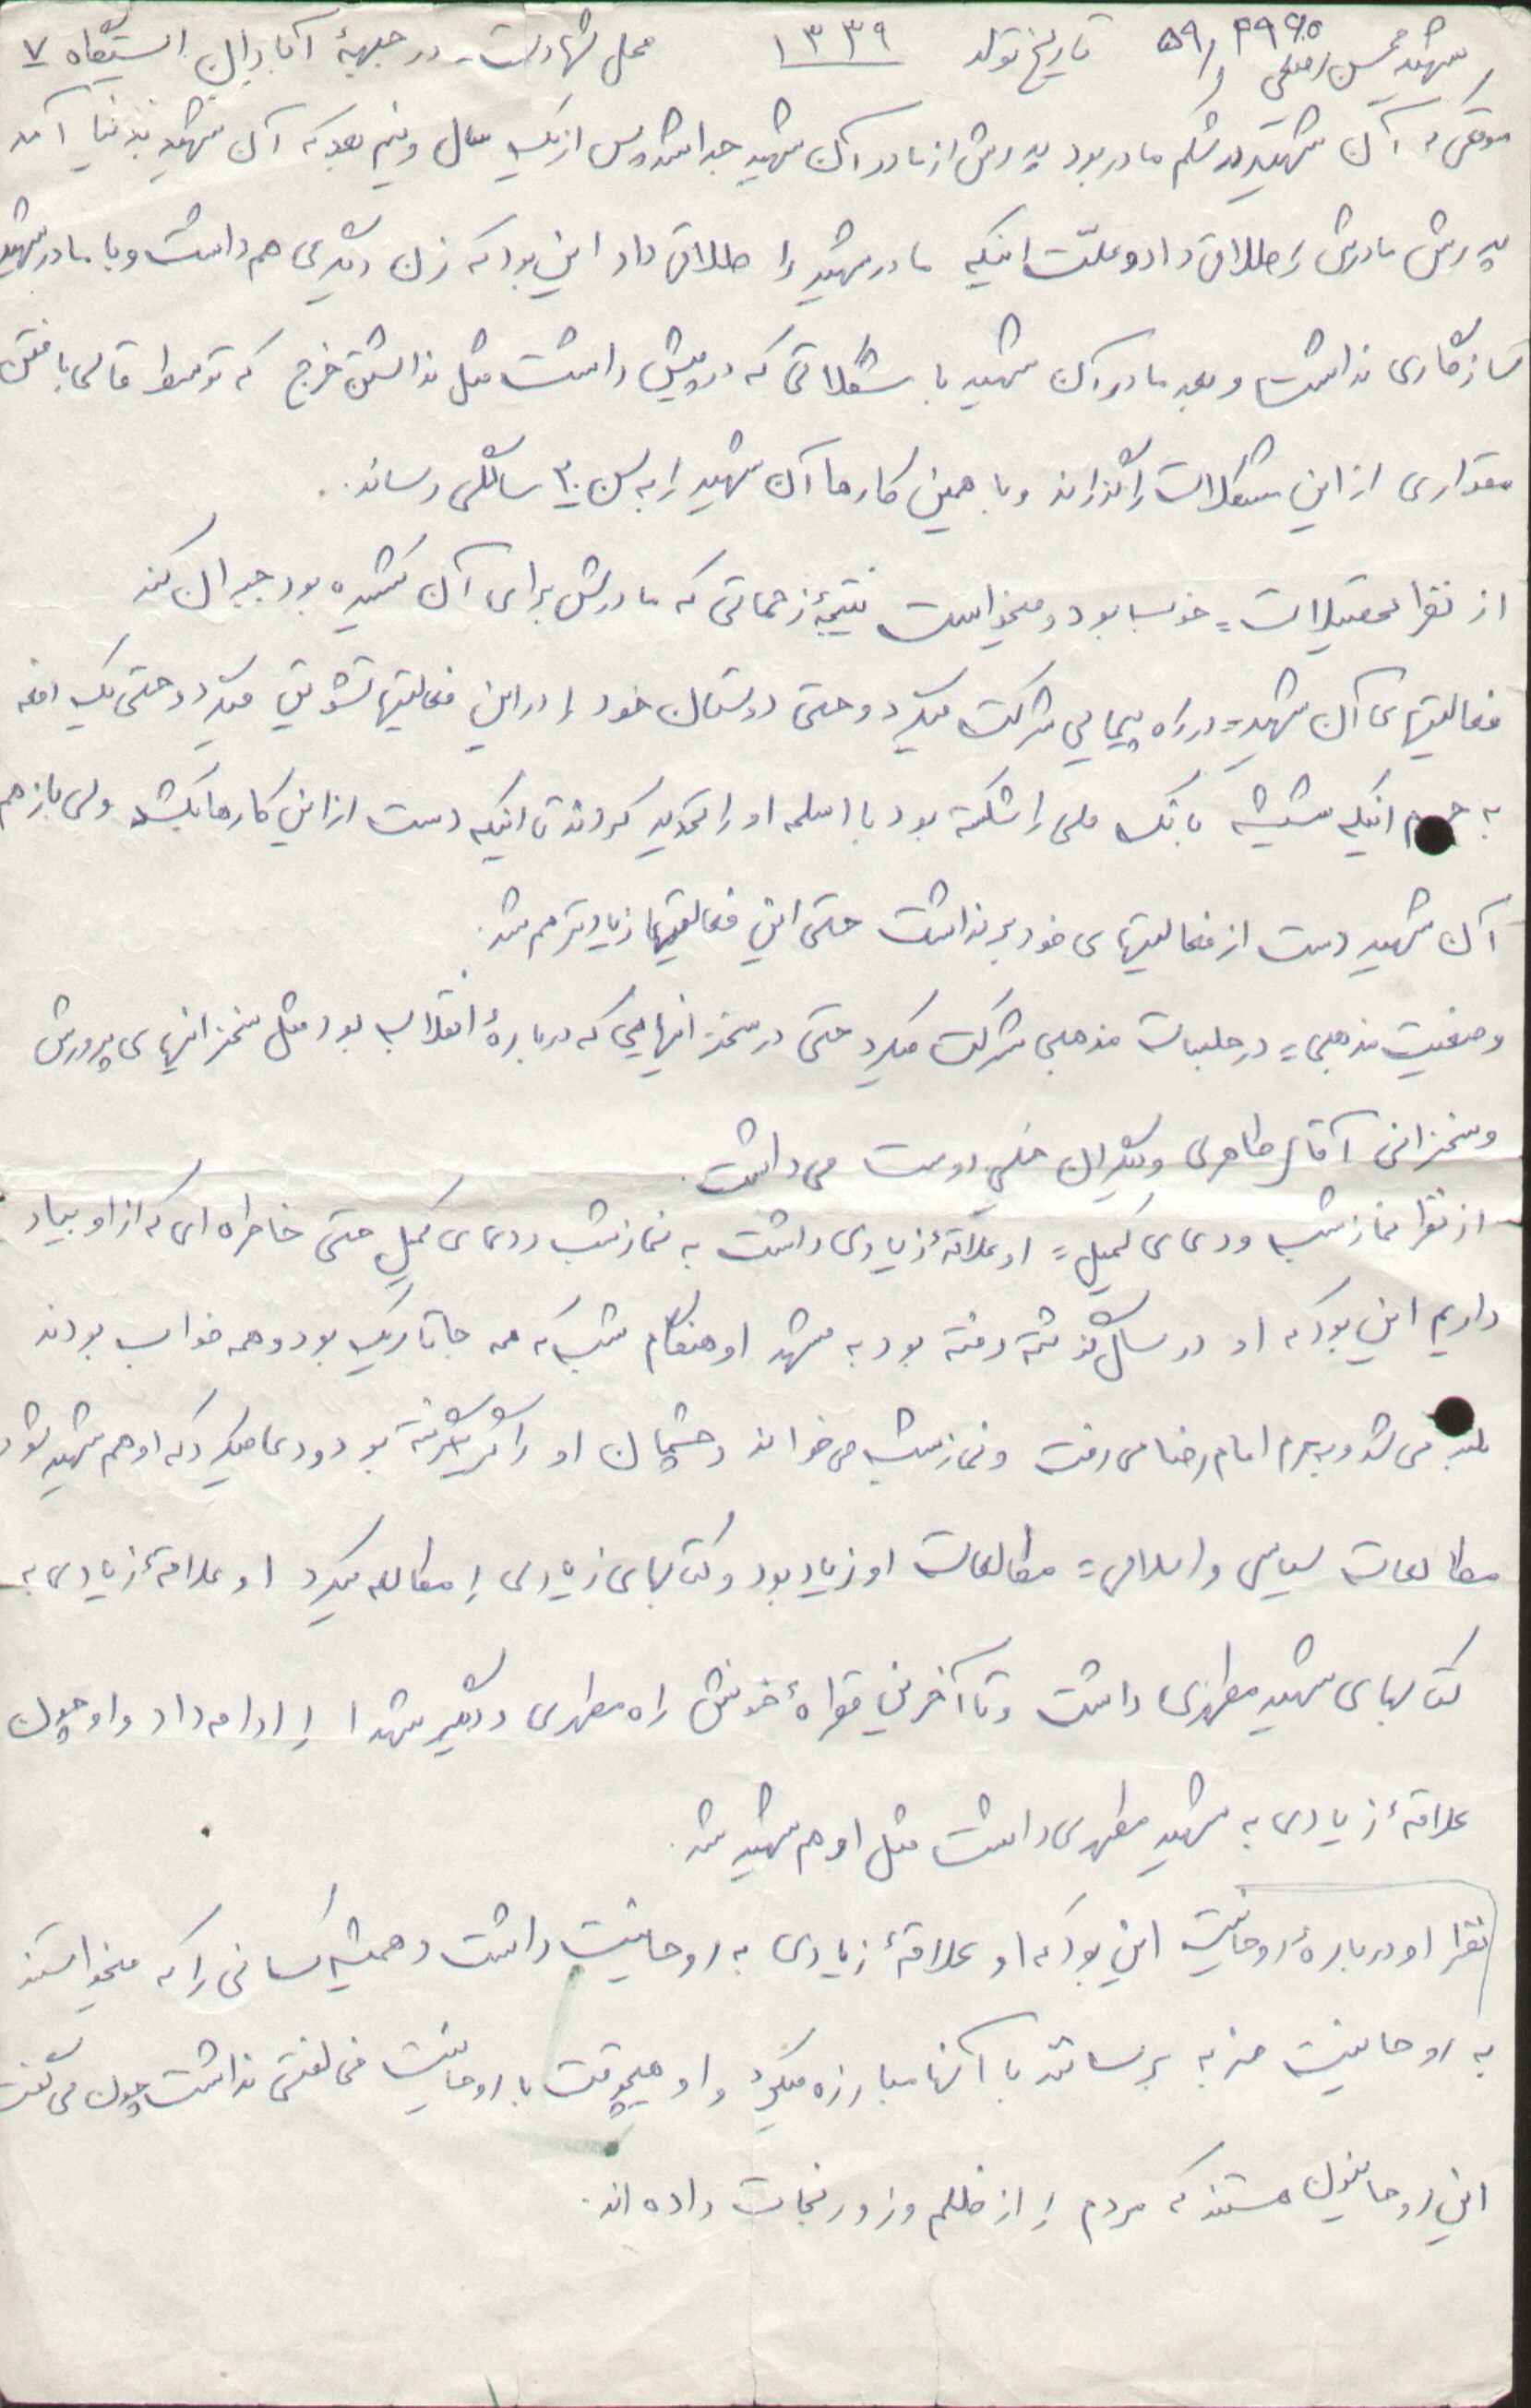 شهید محسن تاریخ تولد ۱۳۳۹ محل شهادت = در جبههٔ آبادان ایستگاه ۷
موقعی که آن شهید در شکم مادر بود پدرش از مادر آن شهید جدا شد پس از یک سال و نیم بعد که آن شهید بدنیا آمد
پدرش مادرش را طلاق داد و علّت اینکه مادر شهید را طلاق داد این بود که زن دیگری هم داشت و با مادر شهید
سازگاری نداشت و بعد مادر آن شهید با مشگلاتی که در پیش داشت مثل نداشتن خرج که توسط قالی بافتن
مقداری از این مشکلات را گذراند و با همین کارها آن شهید را به سن ۲۰ سالگی رساند.
از نظر تحصیلات = خوب بود و میخواست نتیجهٔ زحماتی که مادرش برای آن کشیده بود جبران کند
فعالیتهای آن شهید = در راه پیمایی شرکت میکرد و حتی دوستان خود را در این فعالیتها تشویق میکرد و حتی یک دفعه
به جرم اینکه شیشه بانک ملی را شکسته بود با اسلحه او را تهدید کردند تا اینکه دست از این کارها بکشد ولی باز هم
آن شهید دست از فعالیتهای خود برنداشت حتی این فعالیتها زیادتر هم شد.
وضعیت مذهبی = در جلسات مذهبی شرکت میکرد حتی در سخنرانیهایی که دربارهٔ انقلاب بود مثل سخنرانیهای پرورش
و سخنرانی آقای طاهری و دیگران خیلی دوست می داشت.
از نظر نماز شب و دعای کمیل = او علاقهٔ زیادی داشت به نماز شب و دعای کمیل حتی خاطره ای که از او بیاد
داریم این بود که او در سال گذشته رفته بود به مشهد او هنگام شب که همه جا تاریک بود و همه خواب بودند
بلند می شد و به حرم امام رضا می رفت و نماز شب می خواند و چشمان او را گریه گرفته بود و دعا میکرد که او هم شهید شود
مطالعات سیاسی و اسلامی = مطالعات او زیاد بود و کتابهای زیادی را مطالعه میکرد او علاقهٔ زیادی به
کتابهای شهید مطهری داشت و تا آخرین قطرهٔ خونش راه مطهری و دیگر شهدا را ادامه داد و او چون
علاقهٔ زیادی به شهید مطهری داشت مثل او هم شهید شد.
نظر او دربارهٔ روحانیت این بود که او علاقهٔ زیادی به روحانیت داشت و همیشه کسانی را که میخواستند
به روحانیت ضربه برسانند با آنها مبارزه میکرد و او هیچوقت با روحانیت مخالفتی نداشت چون می گفت
این روحانیون هستند که مردم را از ظلم و زور نجات داده اند.